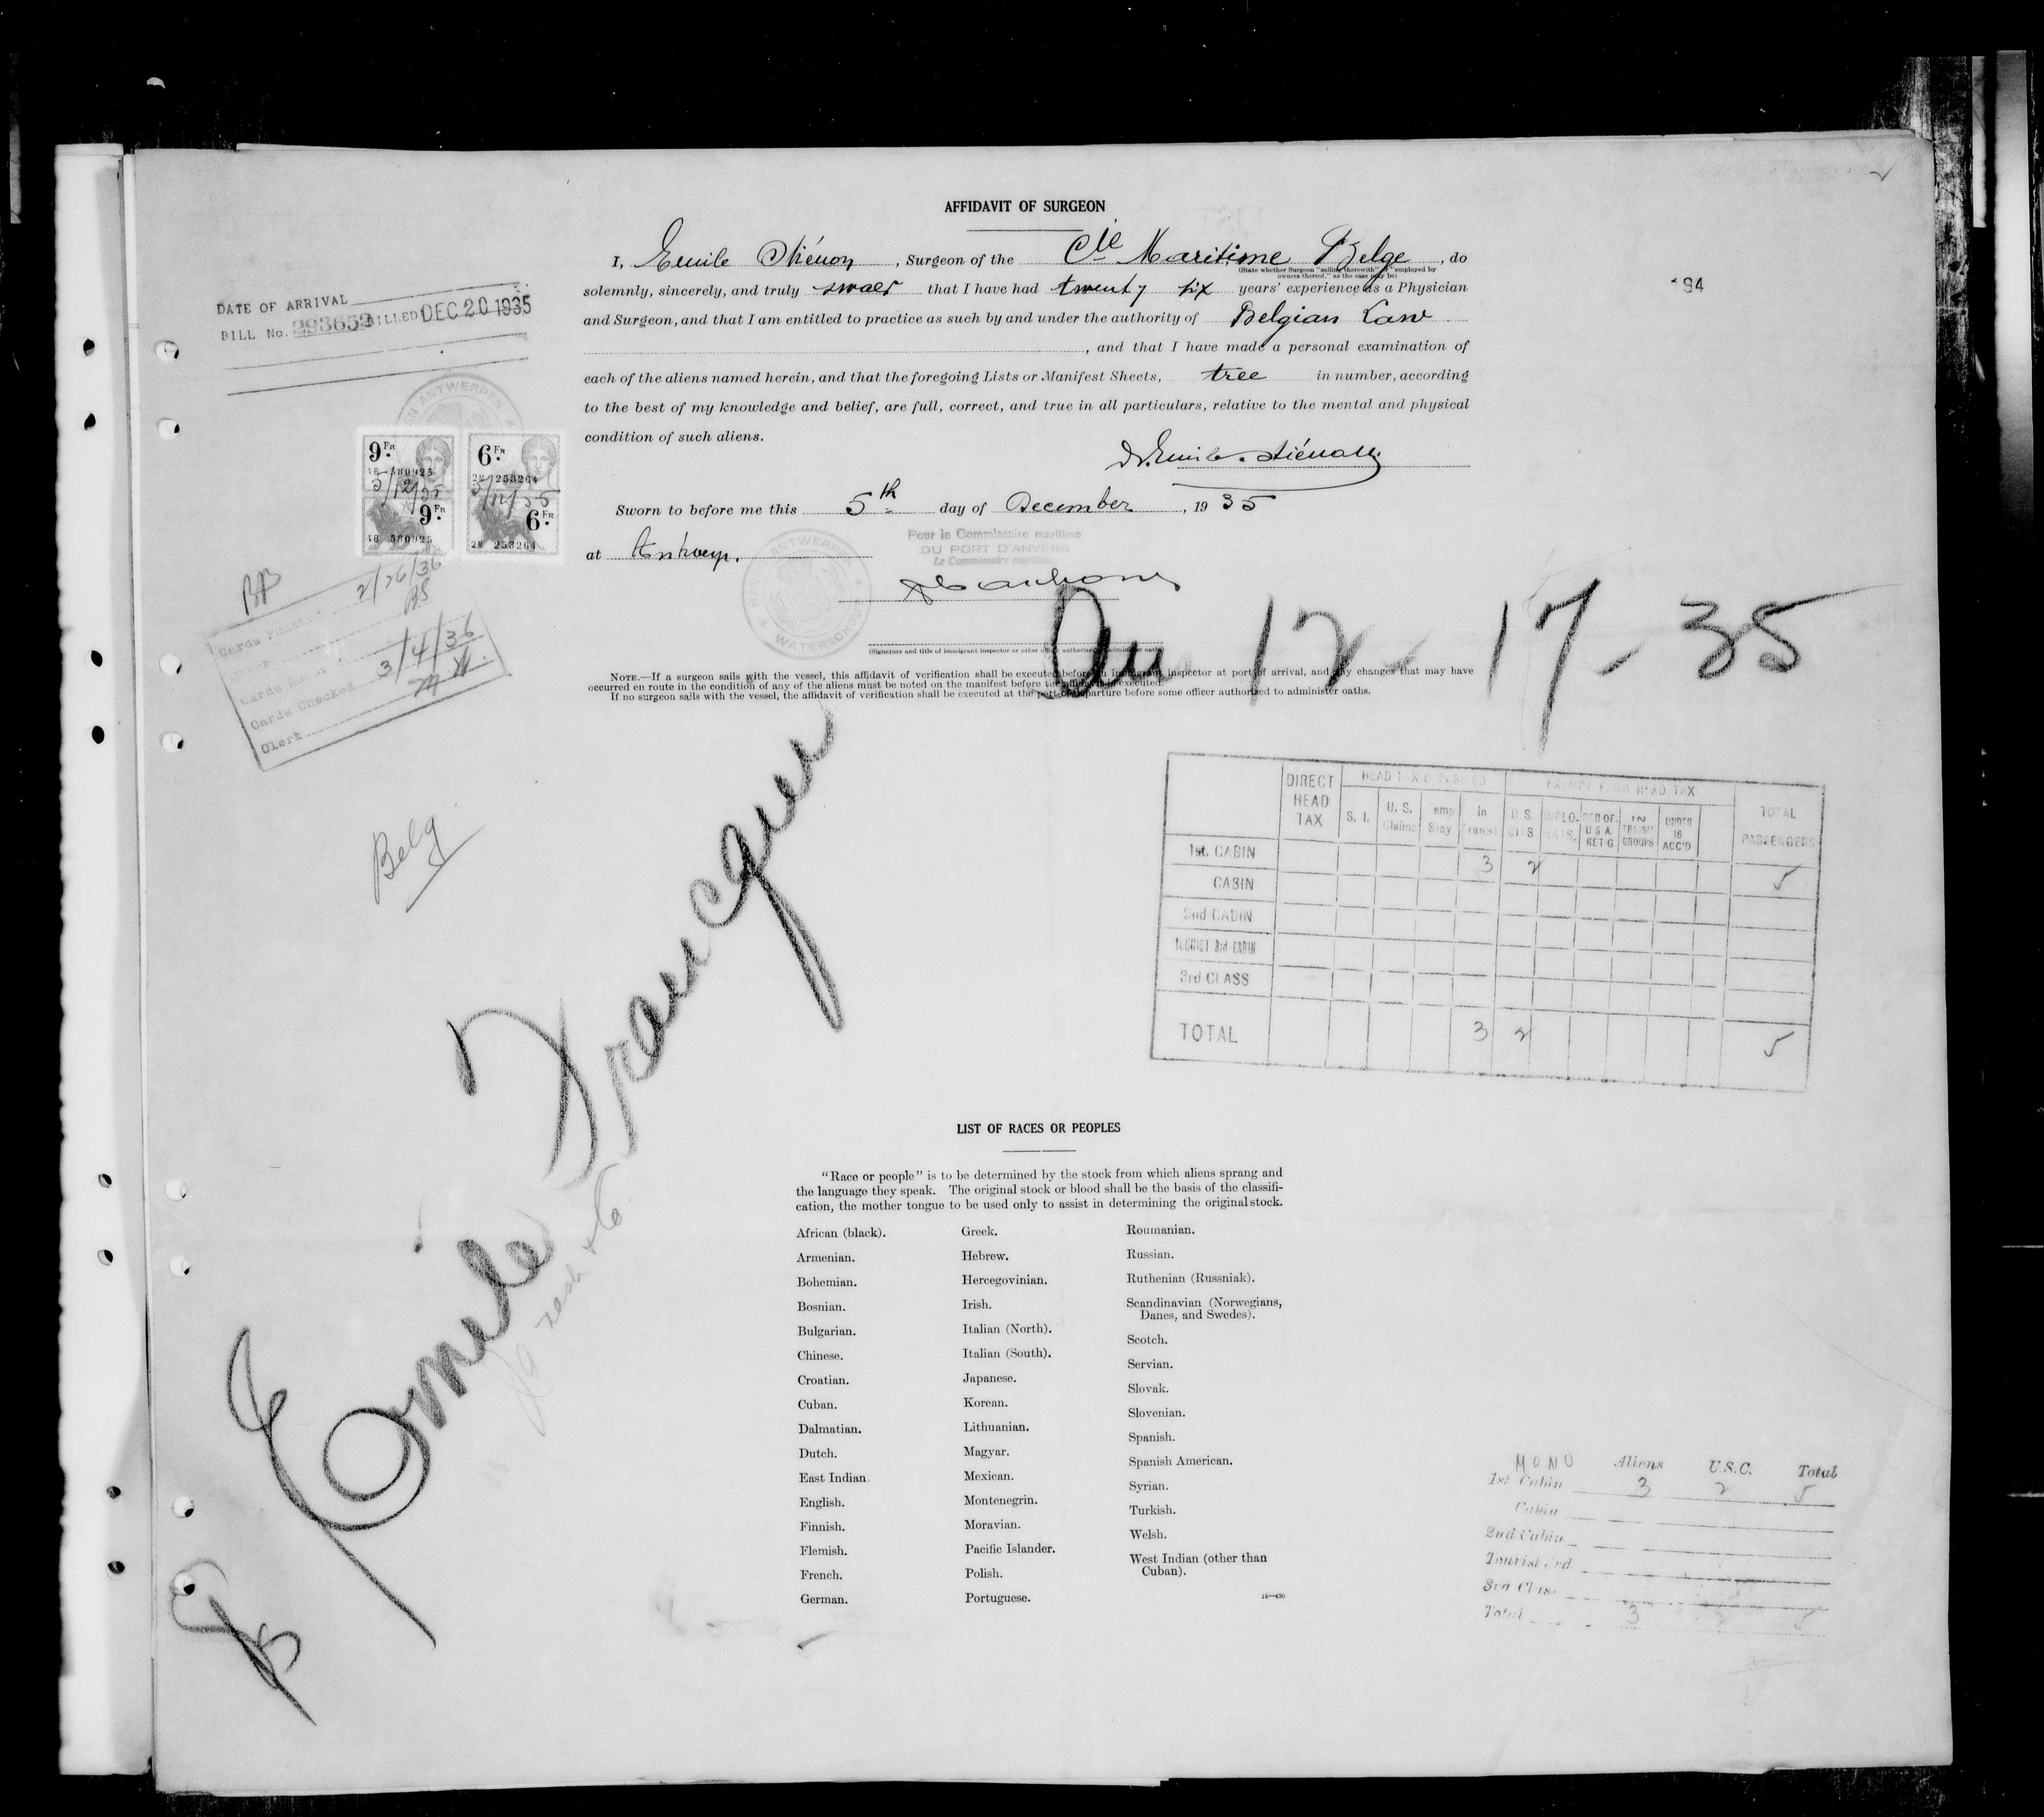 AFFIDAVIT OF SURGEON
I, Emile Stiénon, Surgeon of the Cie Maritime Belge, do
(State whether Surgeon "sailing therewith" or "employed by owners thereof," as the case may be)
solemnly, sincerely, and truly swaer that I have had twenty six years' experience as a Physician
and Surgeon, and that I am entitled to practice as such by and under the authority of Belgian Law
, and that I have made a personal examination of
each of the aliens named herein, and that the foregoing Lists or Manifest Sheets, tree in number, according
to the best of my knowledge and belief, are full, correct, and true in all particulars, relative to the mental and physical
condition of such aliens.
Dr. Emile Stiénon
Sworn to before me this 5th day of December, 1935
at Antwerp.
Pour le Commissaire maritime
DU PORT D'ANVERS
Le Commissaire maritime
ANTWERPEN
WATERSCHOUT
(Signature and title of immigrant inspector or other officer authorized to administer oaths)
NOTE.—If a surgeon sails with the vessel, this affidavit of verification shall be executed before an immigrant inspector at port of arrival, and any changes that may have
occurred en route in the condition of any of the aliens must be noted on the manifest before the affidavit is executed.
If no surgeon sails with the vessel, the affidavit of verification shall be executed at the port of departure before some officer authorized to administer oaths.
194
DATE OF ARRIVAL
BILL No. 293652 BILLED DEC 20 1935
ANTWERPEN
9 Fr 6 Fr
4B 580925 2M 253264
5/12/35 5/12/35
9 Fr 6 Fr
4B 580925 2M 253264
2/26/36
Cards Punched
3/4/36
Cards Checked
Clerk
Belg
12 - 17 - 35
Emile Francqui
DIRECT HEAD TAX
HEAD TAX DEPOSITED
EXEMPT FROM HEAD TAX
TOTAL PASSENGERS
S. I.
U. S. Claims
Temp Stay
in Transit
U.S. CITS
DIPLOMATS.
RES OF U S A. RET'G
IN TRANSIT GROUPS
UNDER 16 ACC'D
1st. CABIN 3 2 5
CABIN
2nd CABIN
TOURIST 3rd CABIN
3rd CLASS
TOTAL 3 2 5
LIST OF RACES OR PEOPLES
"Race or people" is to be determined by the stock from which aliens sprang and
the language they speak. The original stock or blood shall be the basis of the classifi-
cation, the mother tongue to be used only to assist in determining the original stock.
African (black).
Armenian.
Bohemian.
Bosnian.
Bulgarian.
Chinese.
Croatian.
Cuban.
Dalmatian.
Dutch.
East Indian.
English.
Finnish.
Flemish.
French.
German.
Greek.
Hebrew.
Hercegovinian.
Irish.
Italian (North).
Italian (South).
Japanese.
Korean.
Lithuanian.
Magyar.
Mexican.
Montenegrin.
Moravian.
Pacific Islander.
Polish.
Portuguese.
Roumanian.
Russian.
Ruthenian (Russniak).
Scandinavian (Norwegians,
Danes, and Swedes).
Scotch.
Servian.
Slovak.
Slovenian.
Spanish.
Spanish American.
Syrian.
Turkish.
Welsh.
West Indian (other than
Cuban).
14—430
MONO Aliens U.S.C. Total
1st Cabin 3 2 5
Cabin
2nd Cabin
Tourist 3rd
3rd Class
Total 3 2 5